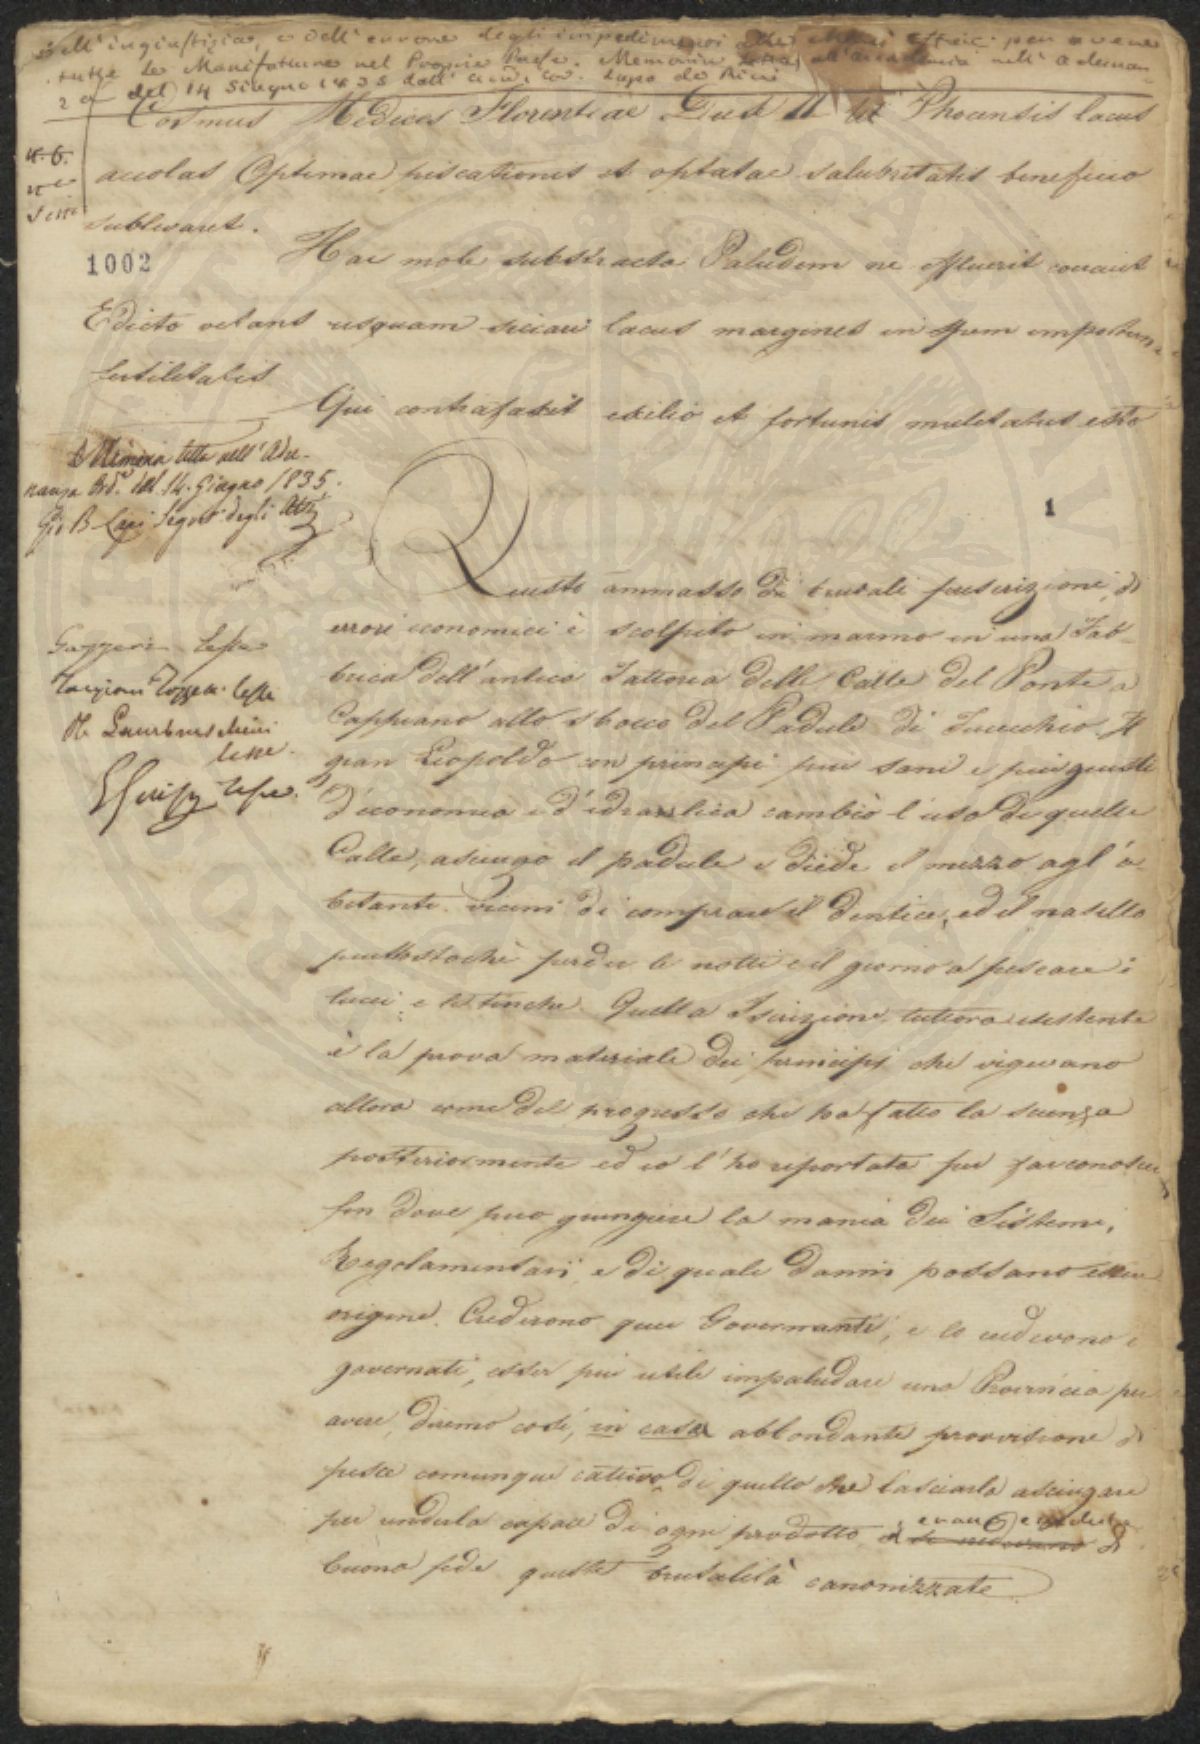 dell'ingiustizia, e dell'errore degl'impedimenti alle per avere
tutte le Manifatture nel Proprio Paese. Memoria letta all'accademia nell'adunan-
del 14 Giugno 1835 dall' Lapo de Ricci
Cosmus Medices Florentiae Dux II ut Phocensis lacus
accolas Optimae piscationis et optatae salubritatis beneficio
sublevaret.
1002
Hac mole substructa Paludem ne effluerit coercuit
Edicto vetans usquam siccari lacus margines in
fertilitatis
Qui contrafaxit exilio et fortunis mulctatus esto
Memoria letta nell'Adu-
nanza Ord.ª del 14. Giugno 1835.
Segret.º degli Atti
1
Questo ammasso di brutali prescrizioni, di
errori economici è scolpito in marmo in una Fab-
brica dell'antica Fattoria delle Calle del Ponte a
Cappiano allo sbocco del Padule di Fucecchio. Il
gran Leopoldo con principi più sani e più giusti
d'economia e d'idraulica cambiò l'uso di quelle
Calle, asciugò il padule e diede il mezzo agl'a-
bitanti vicini di comprare il dentice, ed il nasello
piuttostochè perder le notti e il giorno a pescare i
lucci, e le tinche. Quella Iscrizione tuttora esistente
è la prova materiale dei principj che vigevano
allora come del progresso che ha fatto la scienza
posteriormente ed io l'ho riportata per far conoscer
fin dove può giungere la mania dei Sistemi,
Regolamentari, e di quali danni possano esser
origine. Crederono quei Governanti, e lo credevono i
governati, esser più utile impaludare una Provincia per
avere, diremo così, in casa abbondante provvisione di
pesce comunque cattivo di quello che lasciarla asciugare
per renderla capace di ogni prodotto, e
buona fede queste brutalità canonizzate
Gazzeri lesse
Targioni Tozzetti lesse
lesse
lesse.